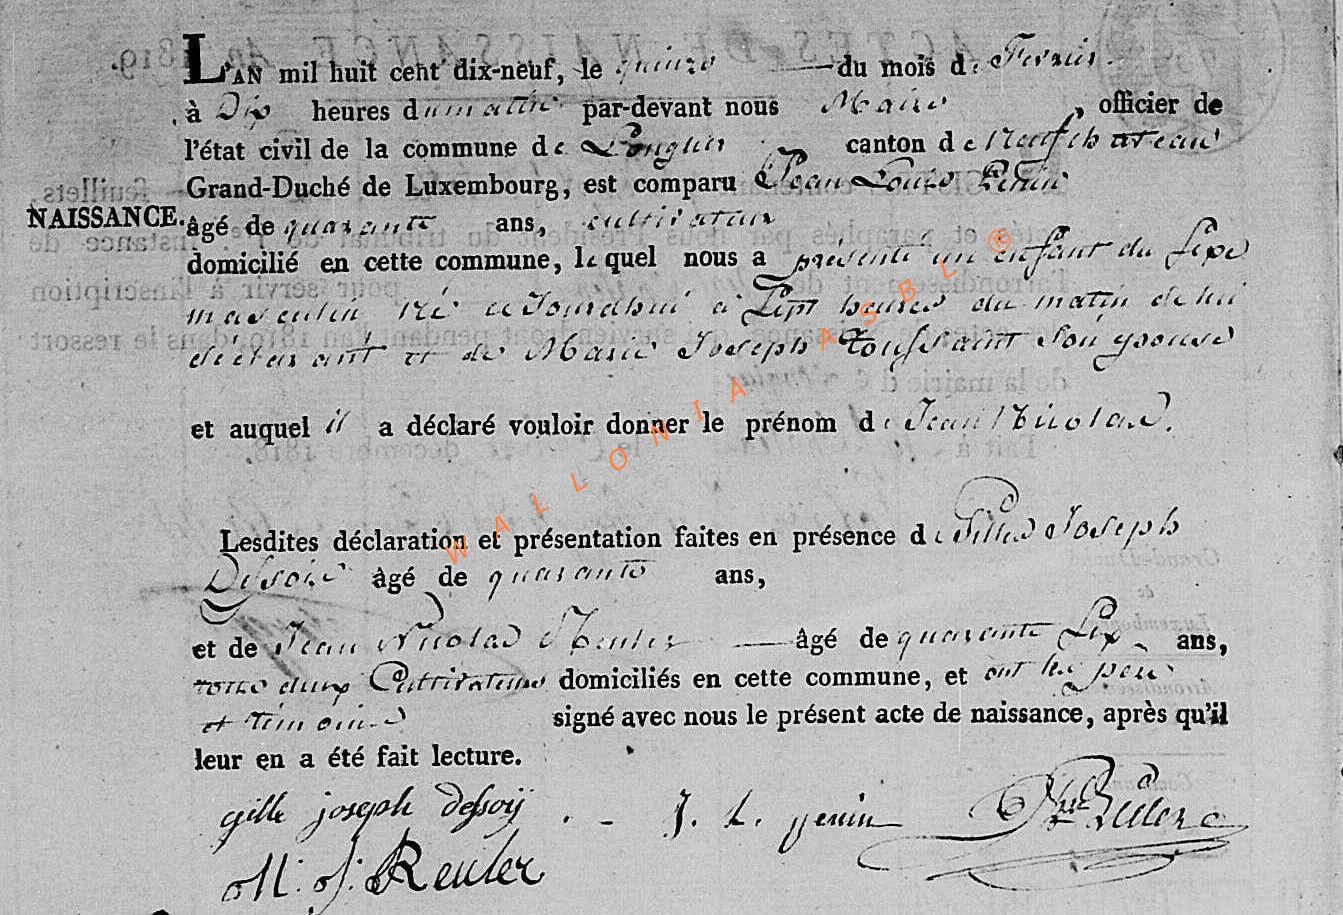 L'AN mil huit cent dix-neuf, le quinze du mois de Fevrier
à Dix heures du matin par-devant nous Maire, officier de
l'état civil de la commune de Longlier canton de Neufchateau
Grand-Duché de Luxembourg, est comparu Jean Louis
NAISSANCE. âgé de quarante ans, cultivateur
domicilié en cette commune, lequel nous a présenté un enfant du Sexe
masculin né aujourdhui à Sept heures du matin de lui
déclarant et de Marie Joseph Toussaint Son epouse
et auquel il a déclaré vouloir donner le prénom de Jean Nicolas.
Lesdites déclaration et présentation faites en présence de Gilles Joseph
âgé de quarante ans,
et de Jean Nicolas âgé de quarante Six ans,
tous deux Cultivateurs domiciliés en cette commune, et ont les pere
et témoins signé avec nous le présent acte de naissance, après qu'il
leur en a été fait lecture.
gille joseph dessoij J. L. genin
Reuler
WALLONIA ASBL ®